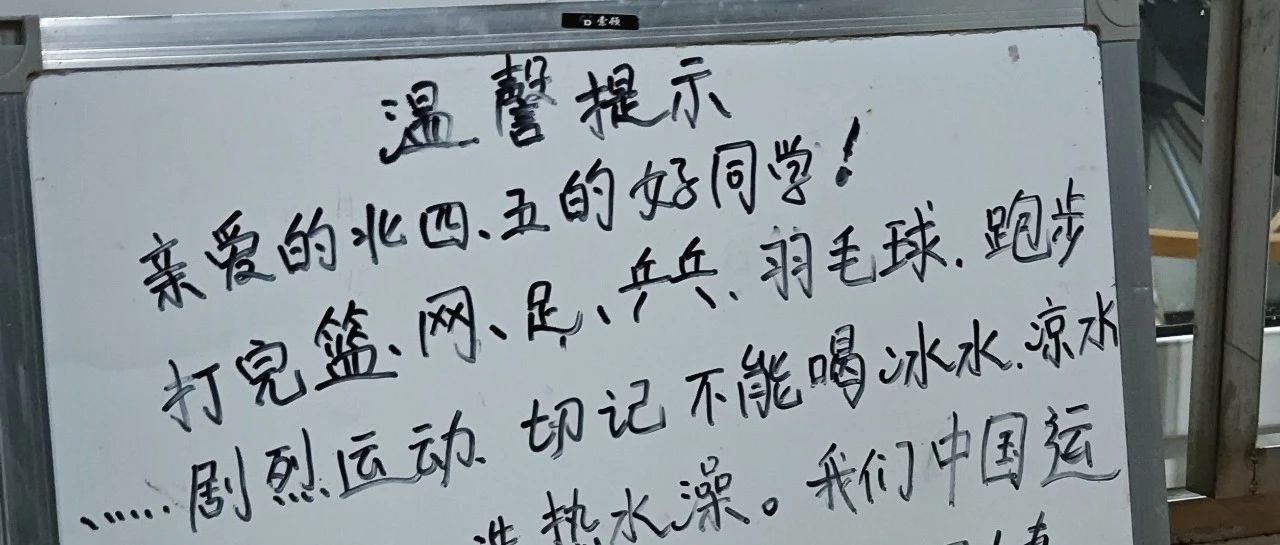 索顿
温馨提示
亲爱的北四、五的好同学！
打完篮、网、足、乒乓、羽毛球、跑步
……剧烈运动、切记不能喝冰水、凉水
洗热水澡。我们中国运